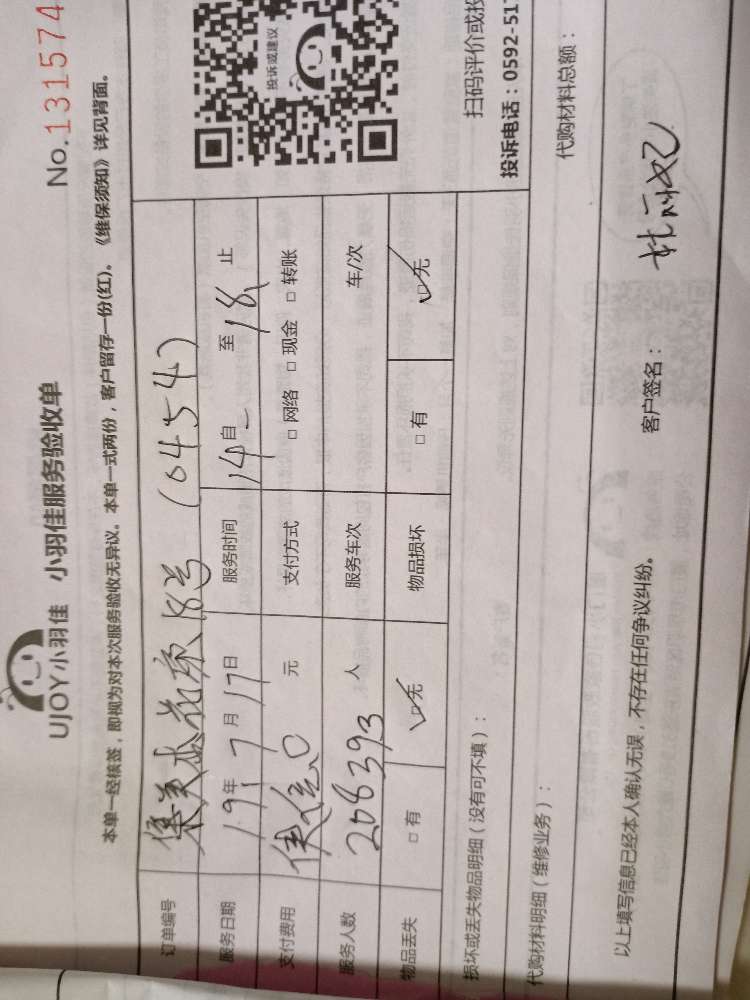 UJOY小羽佳 小羽佳服务验收单
No.131574
本单一经核签，即视为对本次服务验收无异议。本单一式两份，客户留存一份(红)。《维保须知》详见背面。
订单编号 花 18号 (0454)
服务日期 19年7月17日 服务时间 14自 至18 止
支付费用 元 支付方式 □ 网络 □ 现金 □ 转账
服务人数 208393 人 服务车次 车/次
物品丢失 □ 有 □ 无 物品损坏 □ 有 □ 无
投诉或建议
扫码评价或投
投诉电话：0592-517
损坏或丢失物品明细（没有可不填）：
代购材料明细（维修业务）： 代购材料总额：
以上填写信息已经本人确认无误，不存在任何争议纠纷。 客户签名：